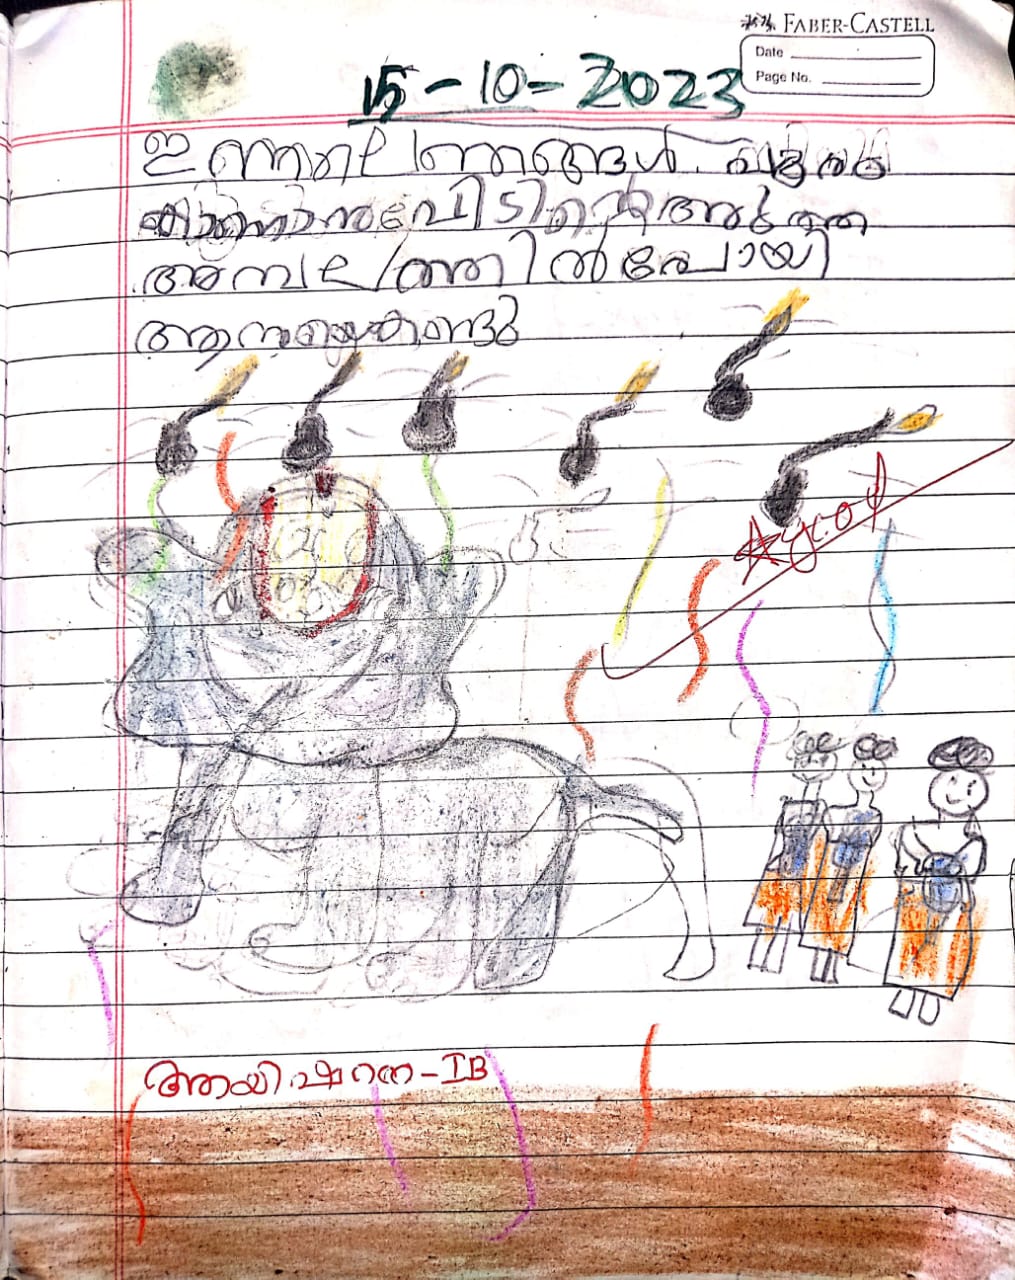 FABER-CASTELL
Date
Page No.
15-10-2023
ഇന്നലെ ഞങ്ങൾ
വീടിന്റെ അടുത്ത
അമ്പലത്തിൽ പോയി
ആനയെ കണ്ടു
ആയിഷ റന - IB